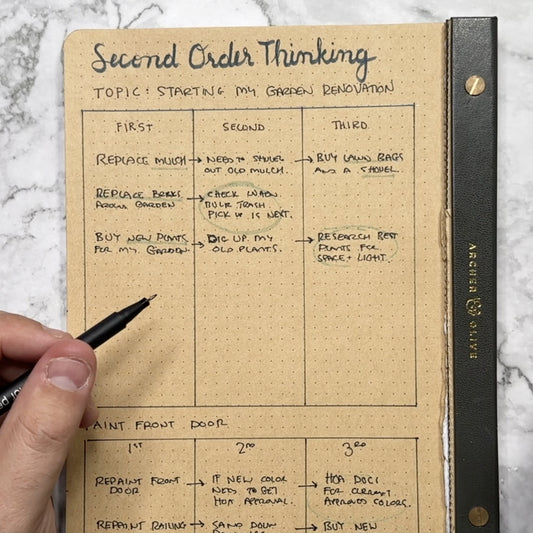 Second Order Thinking
TOPIC: STARTING MY GARDEN RENOVATION
FIRST
SECOND
THIRD
REPLACE MULCH → NEED TO SHOVEL → BUY LAWN BAGS
OUT OLD MULCH.
AND A SHOVEL.
REPLACE BRICKS → CHECK WHEN
AROUND GARDEN
BULK TRASH
PICK UP IS NEXT.
BUY NEW PLANTS → DIG UP MY → RESEARCH BEST
FOR MY GARDEN.
OLD PLANTS.
PLANTS FOR
SPACE + LIGHT.
PAINT FRONT DOOR
1ST
2ND
3RD
REPAINT FRONT → IF NEW COLOR → HOA DOCS
DOOR
NEED TO GET
FOR CURRENT
HOA APPROVAL.
APPROVED COLORS.
REPAINT RAILING → SAND DOWN → BUY NEW
ARCHER & OLIVE